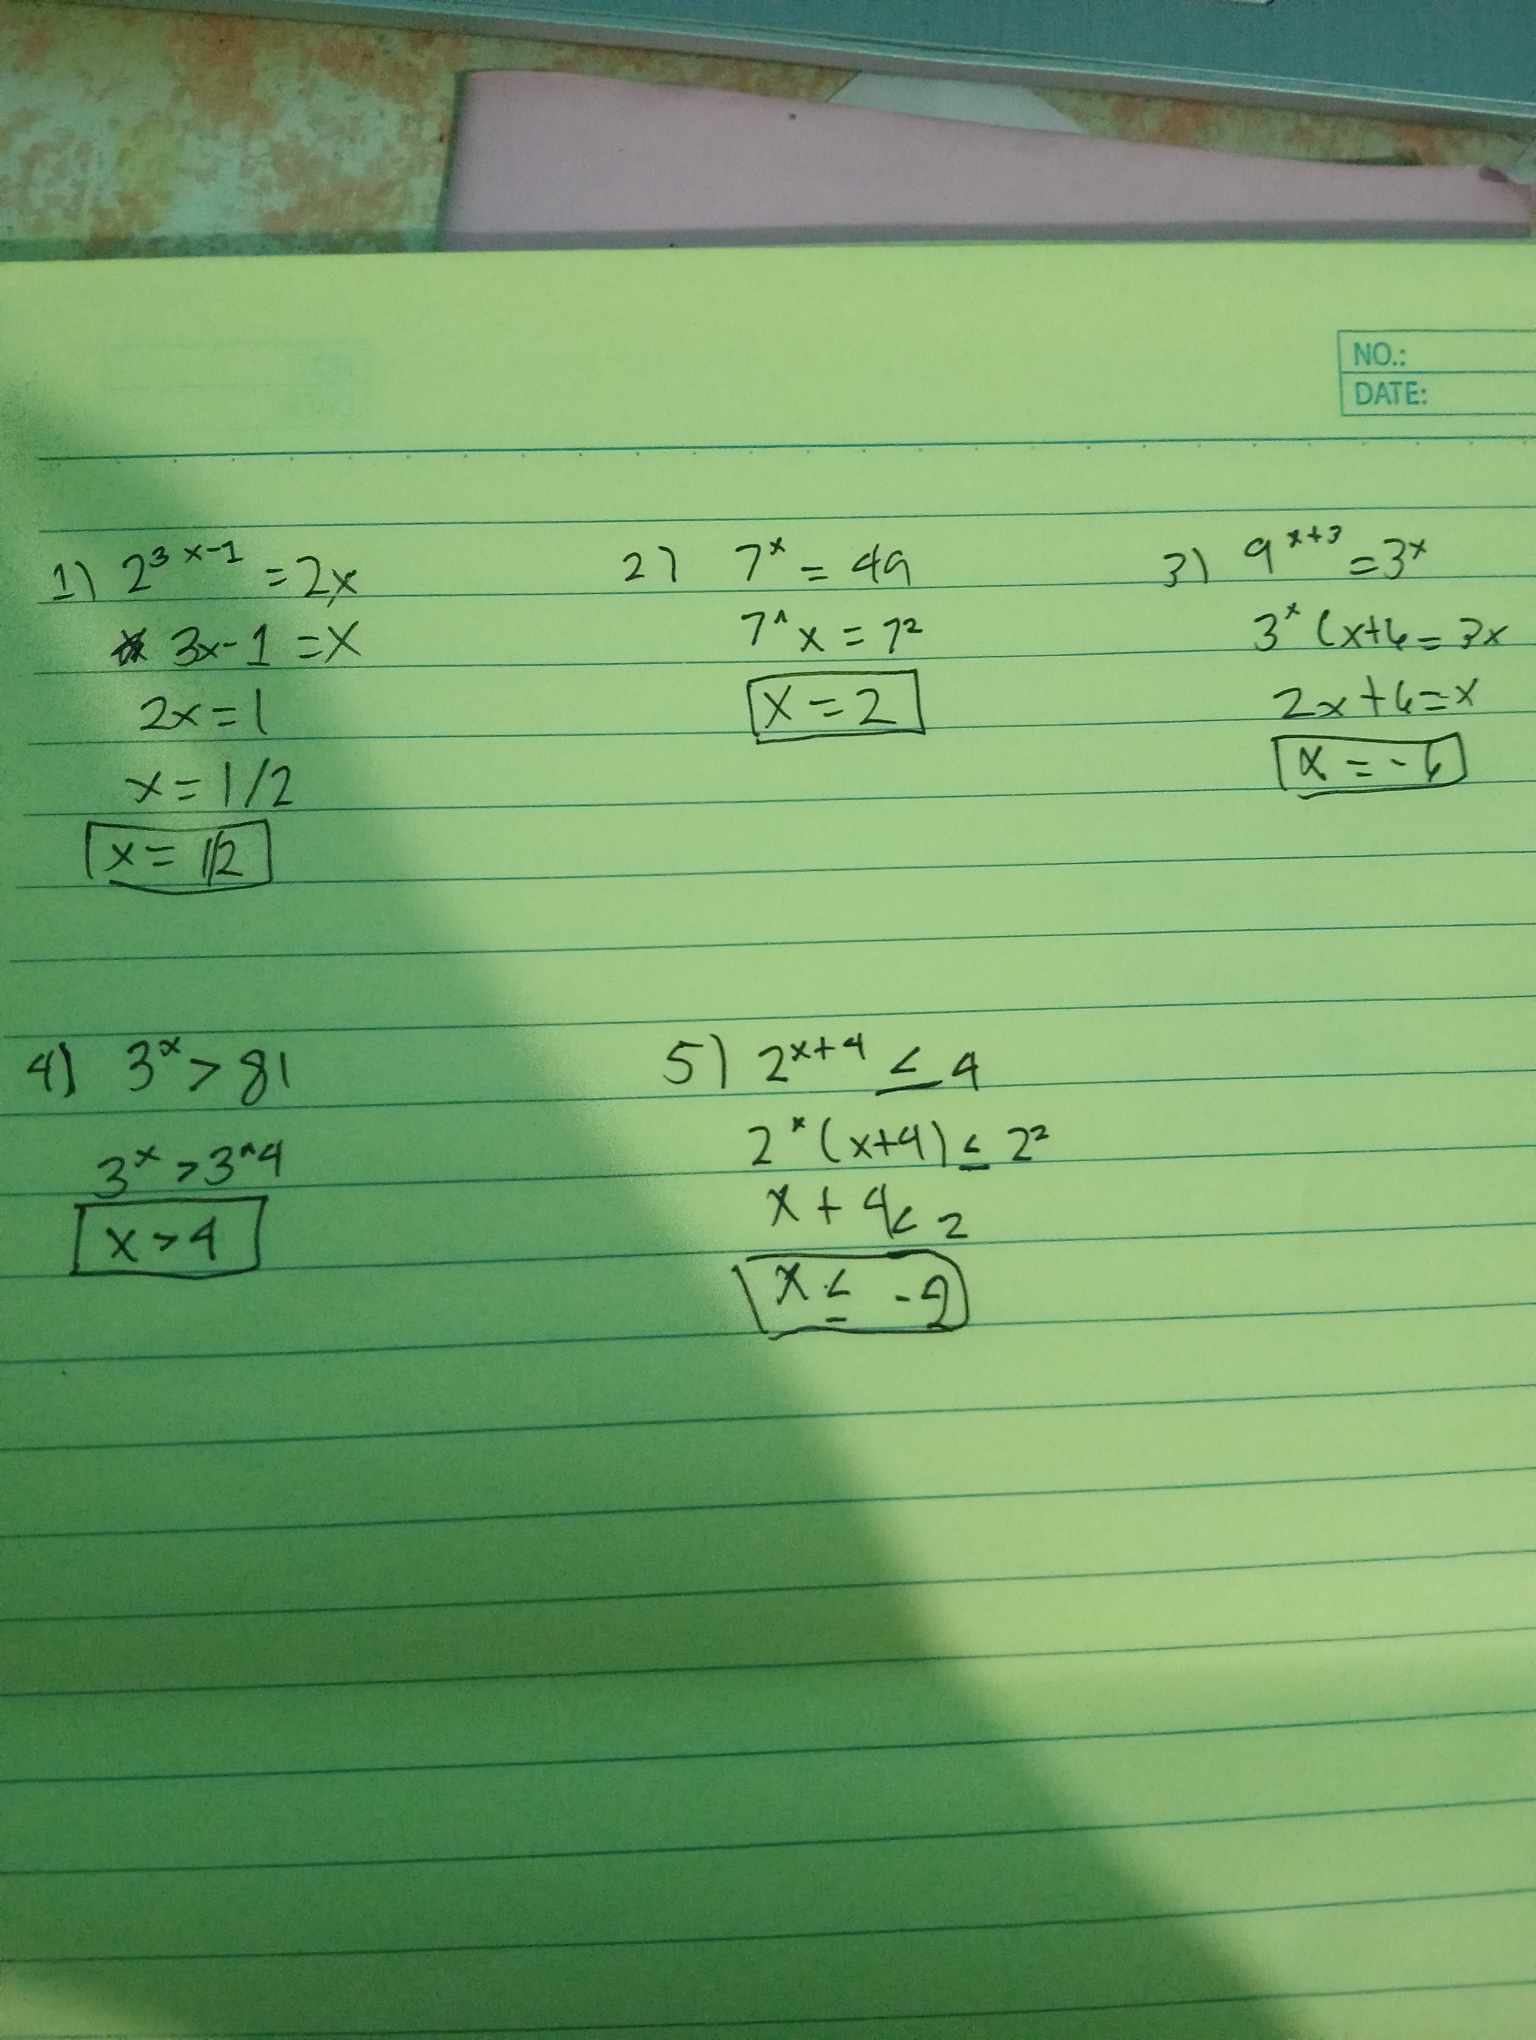 NO.:
DATE:
1) 2³ ˣ⁻¹ = 2x
3x-1 = x
2x = 1
x = 1/2
x = 1/2
2) 7ˣ = 49
7^x = 7²
x = 2
3) 9ˣ⁺³ = 3ˣ
3ˣ (x+6 = 3x
2x+6 = x
x = -6
4) 3ˣ > 81
3ˣ > 3^4
x > 4
5) 2ˣ⁺⁴ ≤ 4
2ˣ (x+4) ≤ 2²
x + 4 < 2
x ≤ -2